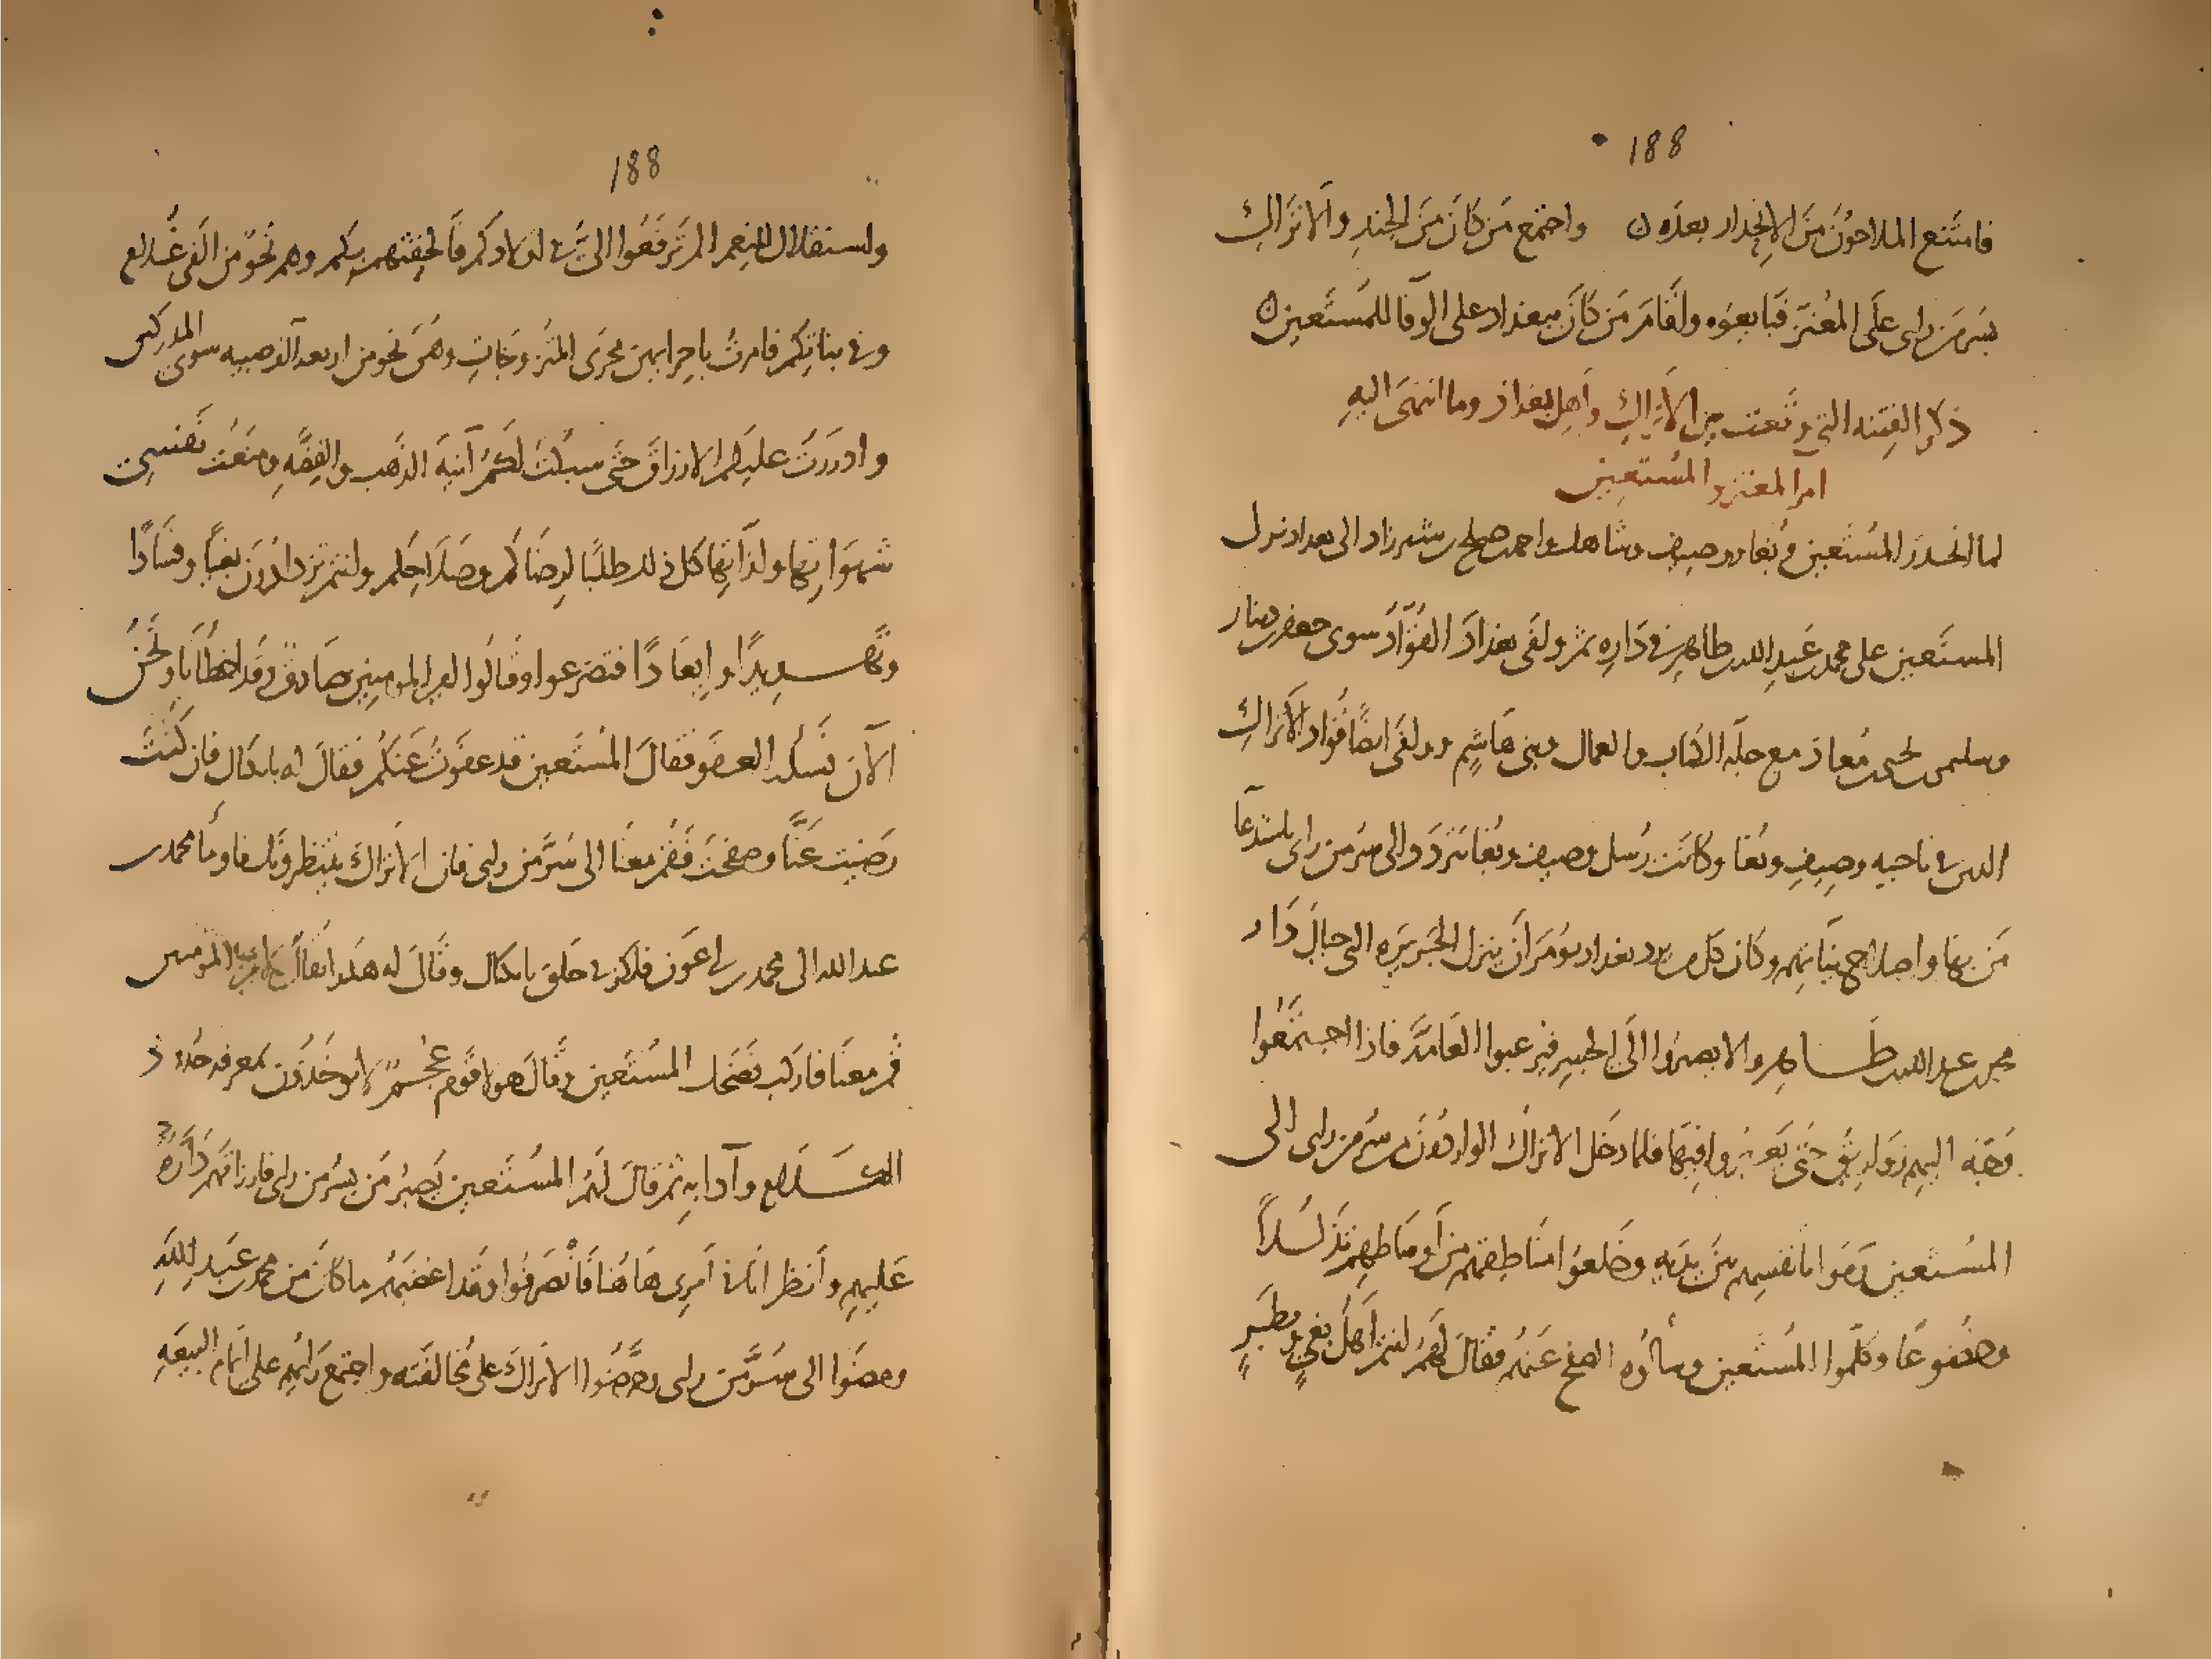 188
فامتنع الملاحون من الانحدار بعده ن واجتمع من كان من الجند والاتراك
بسر من راى على المعتز فبايعوه واقام من كان ببغداد على الوفا للمستعين ن
ذكر الفتنه التي وقعت بين الاتراك واهل بغداذ وما انتهى اليه
امر المعتز والمستعين
لما انحدر المستعين وبغا ووصيف وشاهك واحمد بن صلح بن شيرزاد الى بغداد نزل
المستعين على محمد بن عبد الله بن طاهر في داره ثم وافى بغداد القواد سوى جعفر دينار
وسليمن بن يحيى بن معاذ مع جله الكتاب والعمال وبنى هاشم ووافى ايضا قواد الاتراك
الذين في ناحيه وصيف وبغا وكانت رسل وصيف وبغا تتردد الى سر من راى باستدعا
من بها واصلاح نياتهم وكان كل من ورد بغداد يؤمر ان ينزل الجزيره التي حيال دار
محمد بن عبد الله بن طاهر والا يصيروا الى الجسر فيرعبوا العامة فاذا اجتمعوا
وجه اليهم زواريق حتى يعبروا فيها فلما دخل الاتراك الواردون من سر من راى الى
المستعين رموا بانفسهم بين يديه وخلعوا مناطقهم من اوساطهم تذللا
وخضوعا وكلموا المستعين وسألوه الصفح عنهم فقال لهم انتم اهل بغي وبطر
188
واستقلال للنعم الم ترفعوا الىّ في اولادكم فالحقتهم بكم وهم نحو من الفى غلام
وفي بناتكم فامرت باجرايهن مجرى المتزوجات وهن نحو من اربعه آلاف صبيه سوى المدركين
وادررت عليكم الارزاق حتى سبكت لكم آنية الذهب والفضه ومنعت نفسي
شهواتها ولذاتها كل ذلك طلبا لرضاكم وصلاحكم وانتم تزدادون بغيا وفسادا
وتهديدا وابعادا فتضرعوا وقالوا امير المومنين صادق وقد اخطأنا ونحن
الآن نسله العفو فقال المستعين قد عفوت عنكم فقال له بايكال فان كنت
رضيت عنا وصفحت فقم معنا الى سر من راى فان الاتراك ينتظرونك فاومأ محمد بن
عبد الله الى محمد بن ابي عون فلكز في حلق بايكال وقال له هكذا يقال لامير المومنين
قم معنا فاركب فضحك المستعين وقال هولا قوم عجم لا يوخذون بمعرفه حدود
الكلام وآدابه ثم قال لهم المستعين يصير من بسر من راى فارزاقهم دارّة
عليهم وأنظر انا في امرى هاهنا فانصرفوا وقد اغضبهم ما كان من محمد بن عبد الله
ومضوا الى سر من راى وحرضوا الاتراك على مخالفته واجتمع رايهم على اتمام البيعه